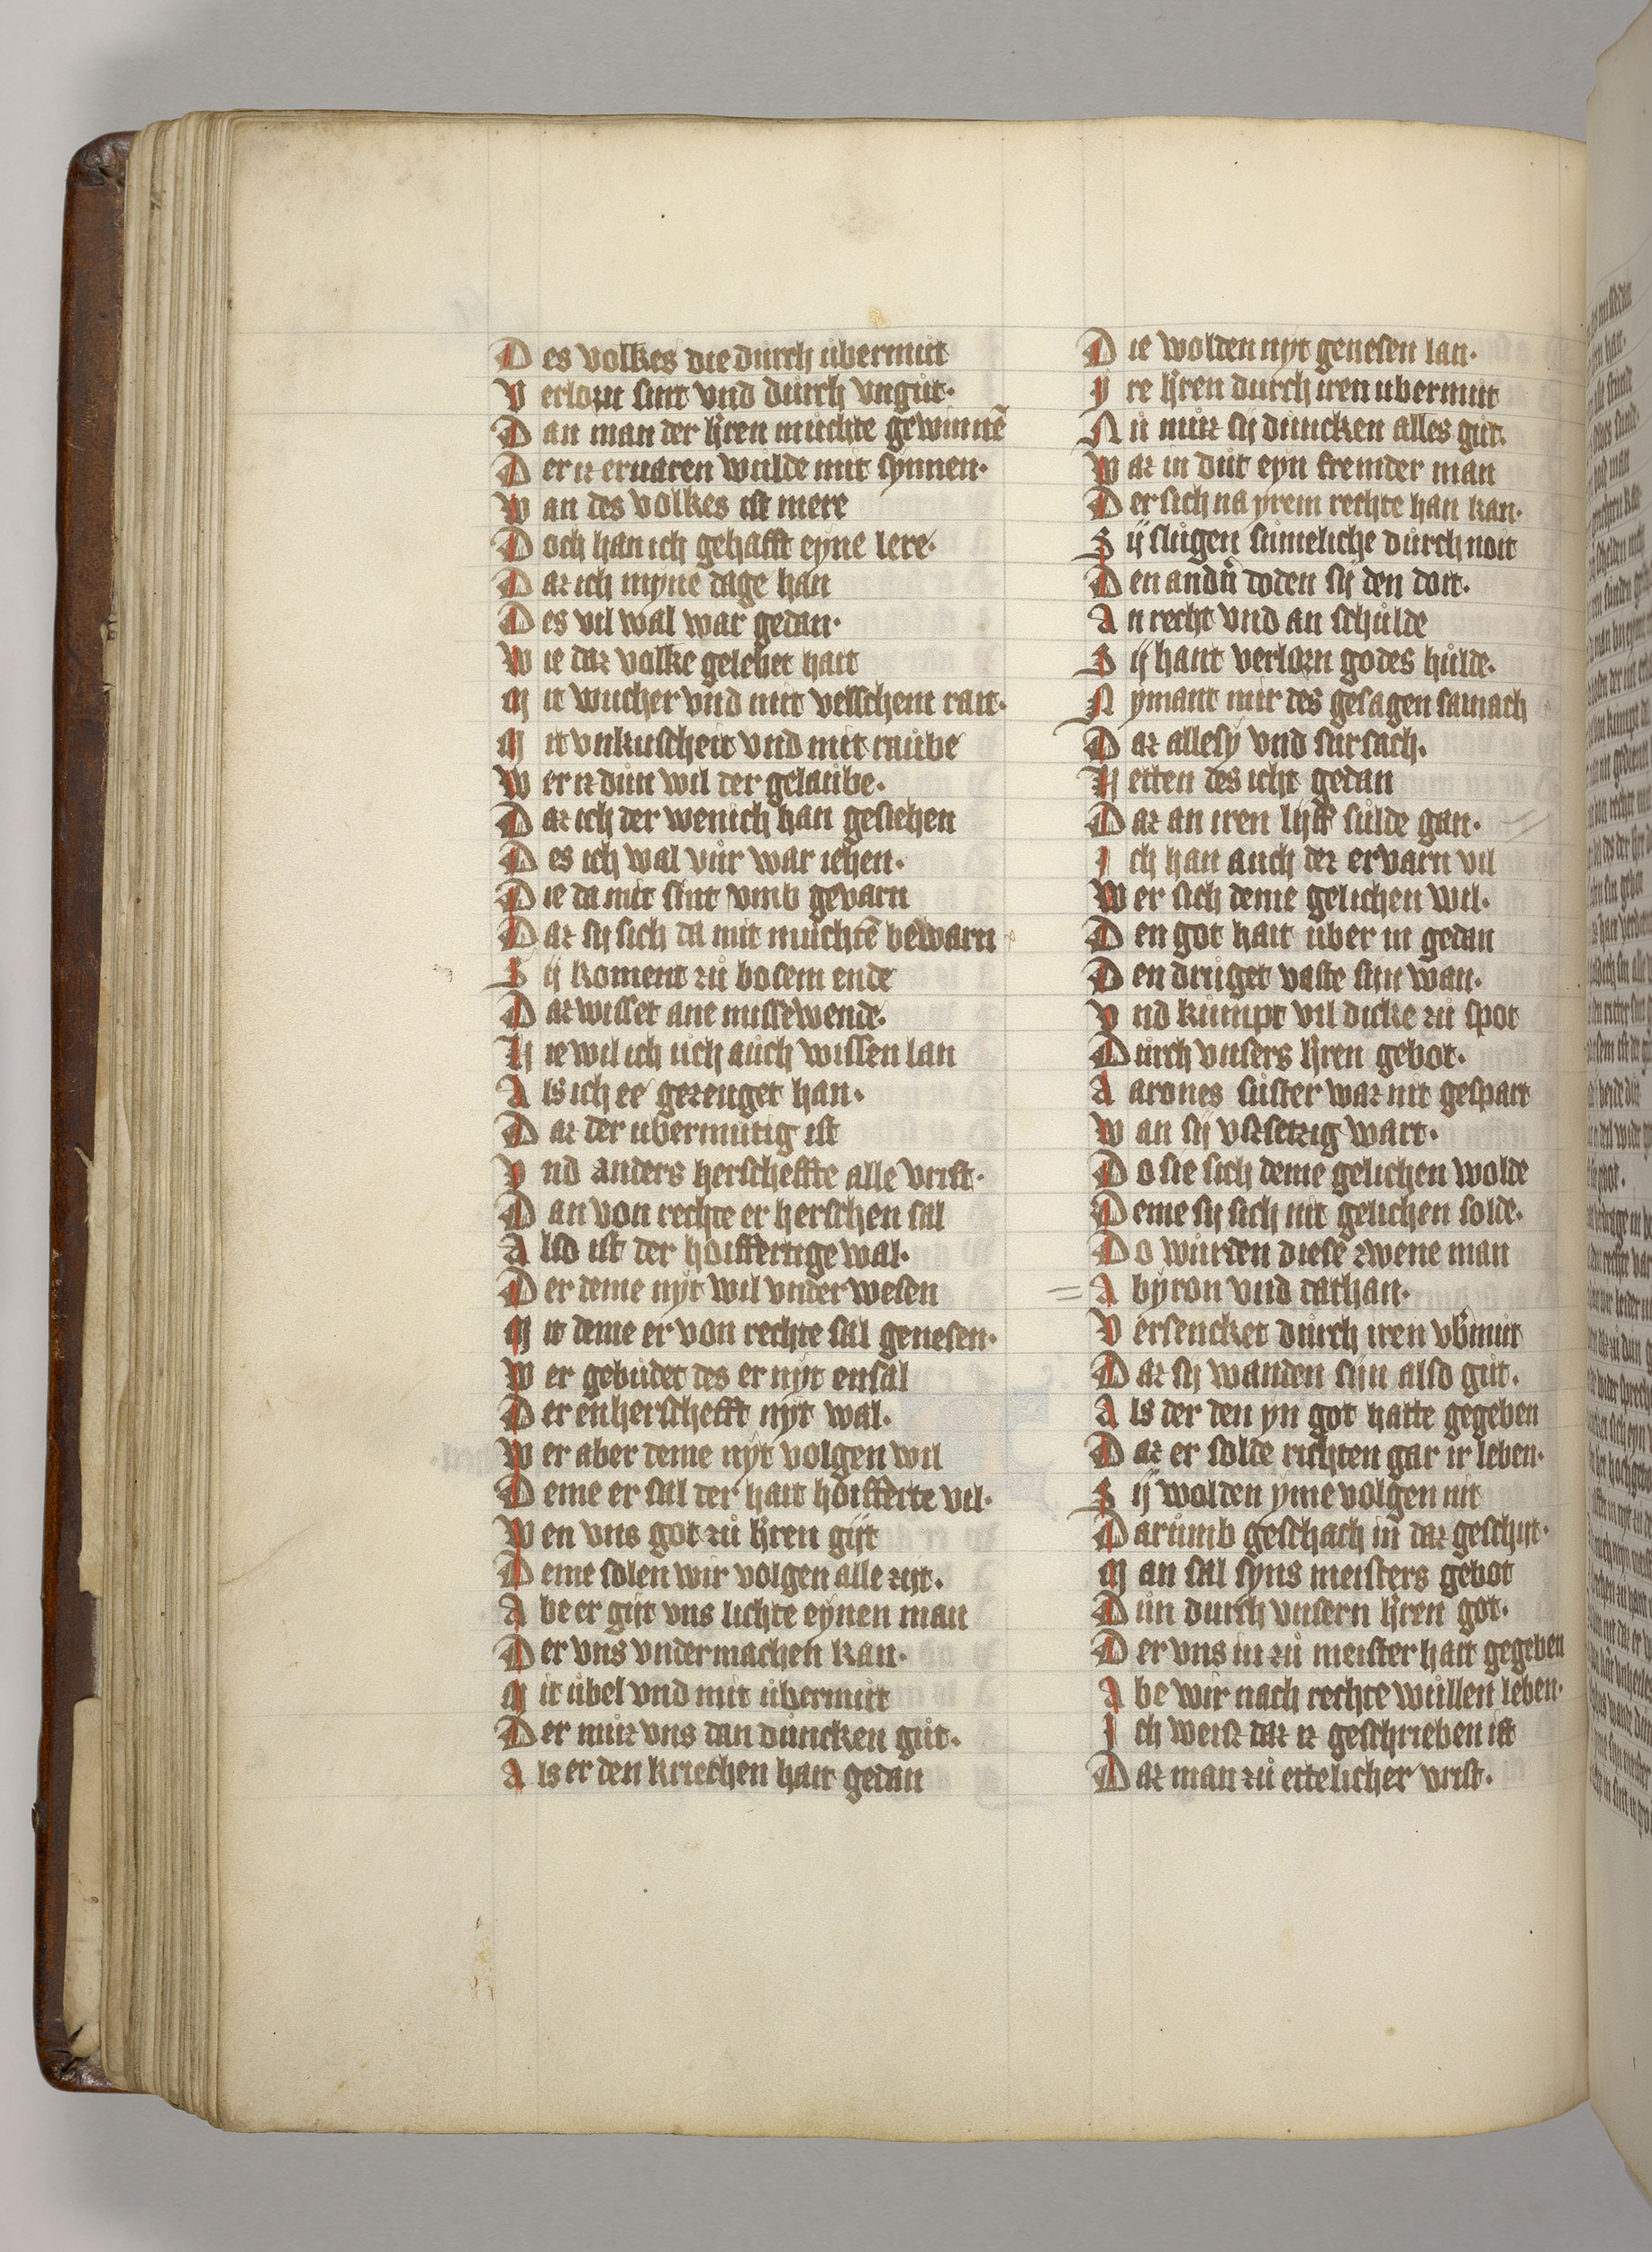 Des volkes die durch ubermut
Verlorn sint vnd důrch vngůt·
Dan man der h̄ren muchte gewinnē
Der iz eruaren wůlde mit synnen·
Wan des volkes ist mere
Doch han ich gehafft eyne lere·
Daz ich myne dage han
Des vil wal war gedan·
Wie daz volke gelebet hait
Mit wucher vnd mit velschem rait·
Mit vnkuscheit vnd mit raůbe
Wer iz důn wil der gelaůbe·
Daz ich der wenich han gesiehen
Des ich wal vůr war iehen·
Die da mit sint vmb gevarn
Daz sy sich da mit muchtē bewarn
Sij koment zů bosem ende
Daz wisset ane missewende·
Hie wil ich uch aůch wissen lan
Als ich ee gezeuget han·
Daz der ubermůtig ist
Vnd anders herscheffte alle vrist·
Dan von rechte er herschen sal
Also ist der hoiffertige wal·
Der deme nyt wil vnder wesen
Mit deme er von rechte sal genesen·
Wer gebůdet des er nyt ensal
Der enherschefft nyt wal·
Wer aber deme nyt volgen wil
Deme er sal der hait hoifferte vil·
Wen vns got zů h̄ren gijt
Deme solen wir volgen alle zijt·
Abe er git vns lichte eynen man
Der vns vndermachen kan·
Mit ůbel vnd mit ůbermůt
Der můz vns dan důncken gůt·
Als er den kriechen hait gedan
Die wolden nyt genesen lan·
Yre h̄ren durch iren ubermut
Nů můz sij důncken alles gůt·
Waz in důt eyn fremder man
Der sich na yrem rechte han kan·
Sij slůgen sůmeliche důrch noit
Den andn̄ doden sij den doit·
An recht vnd an schůlde
Sij hant verlorn godes hůlde·
Nymant mir des gesagen sainach
Daz allesy vnd sůrsach·
Hetten des icht gedan
Daz an iren lijff sůlde gan·
Ich han auch der ervarn vil
Wer sich deme gelichen wil·
Den got hait ůber in gedan
Den drůget vaste sijn wan·
Vnd kůmpt vil dicke zů spot
Důrch vnsers h̄ren gebot·
Aarones sůster waz nit gespart
Wan sij vszsetzig wart·
Do sie sich deme gelichen wolde
Deme sy sich nit gelichen solde·
Do wůrden diese zwene man
Abyron vnd dathan·
Versencket důrch iren vb̄mut
Daz sy wanden sijn also gůt·
Als der den yn got hatte gegeben
Daz er solde richten gar ir leben·
Sij wolden yme volgen nit
Darůmb geschach in daz geschijt·
Man sal syns meisters gebot
Důn durch vnsern h̄ren got·
Der vns in zů meister hait gegeben
Abe wir nach rechte wůllen leben·
Ich weisz daz iz geschrieben ist
Daz man zů ettelicher vrist·